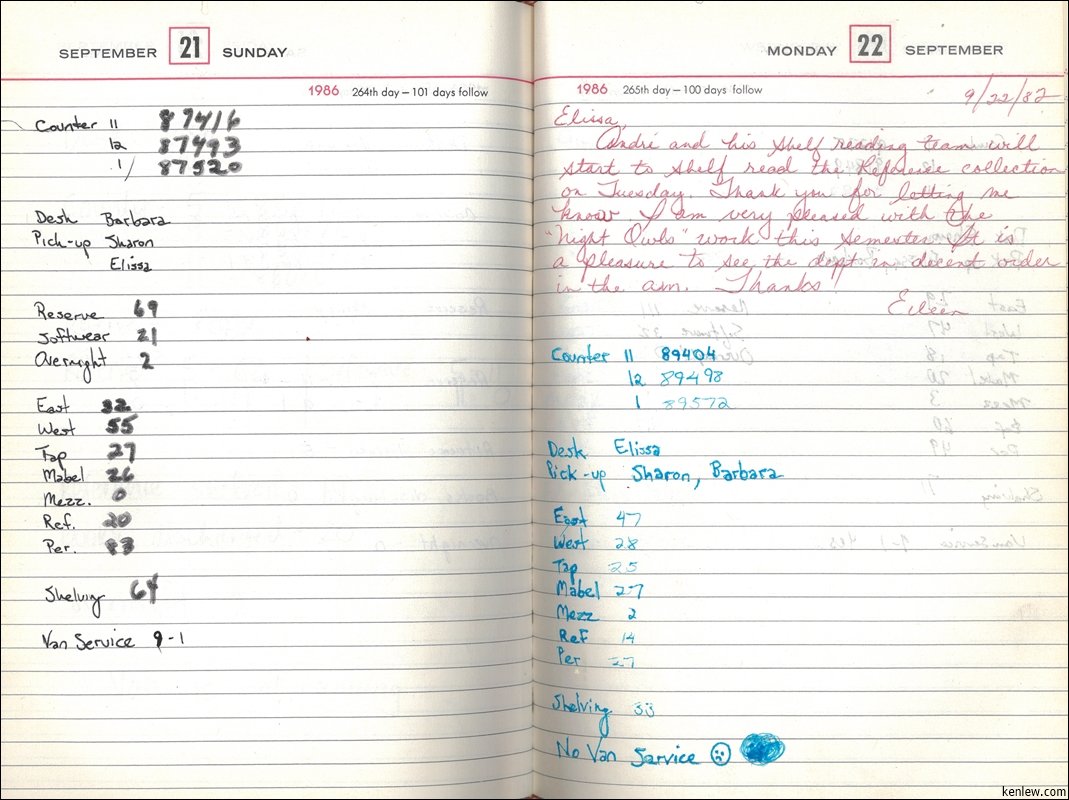 SEPTEMBER 21 SUNDAY
1986 264th day — 101 days follow
Counter 11 87416
12 87493
1 87520
Desk Barbara
Pick-up Sharon
Elissa
Reserve 69
Softwear 21
Overnight 2
East 32
West 55
Tap 27
Mabel 26
Mezz. 0
Ref. 20
Per. 83
Shelving 64
Van Service 9-1
MONDAY 22 SEPTEMBER
1986 265th day — 100 days follow
9/22/82
Elissa,
André and his shelf reading team will
start to shelf read the Reference collection
on Tuesday. Thank you for letting me
know. I am very pleased with the
"Night Owls" work this semester. It is
a pleasure to see the dept in decent order
in the am. Thanks!
Eileen
Counter 11 89404
12 89498
1 89572
Desk Elissa
Pick-up Sharon, Barbara
East 47
West 28
Tap 25
Mabel 27
Mezz 2
Ref 14
Per 27
Shelving 33
No Van Service ☹
kenlew.com